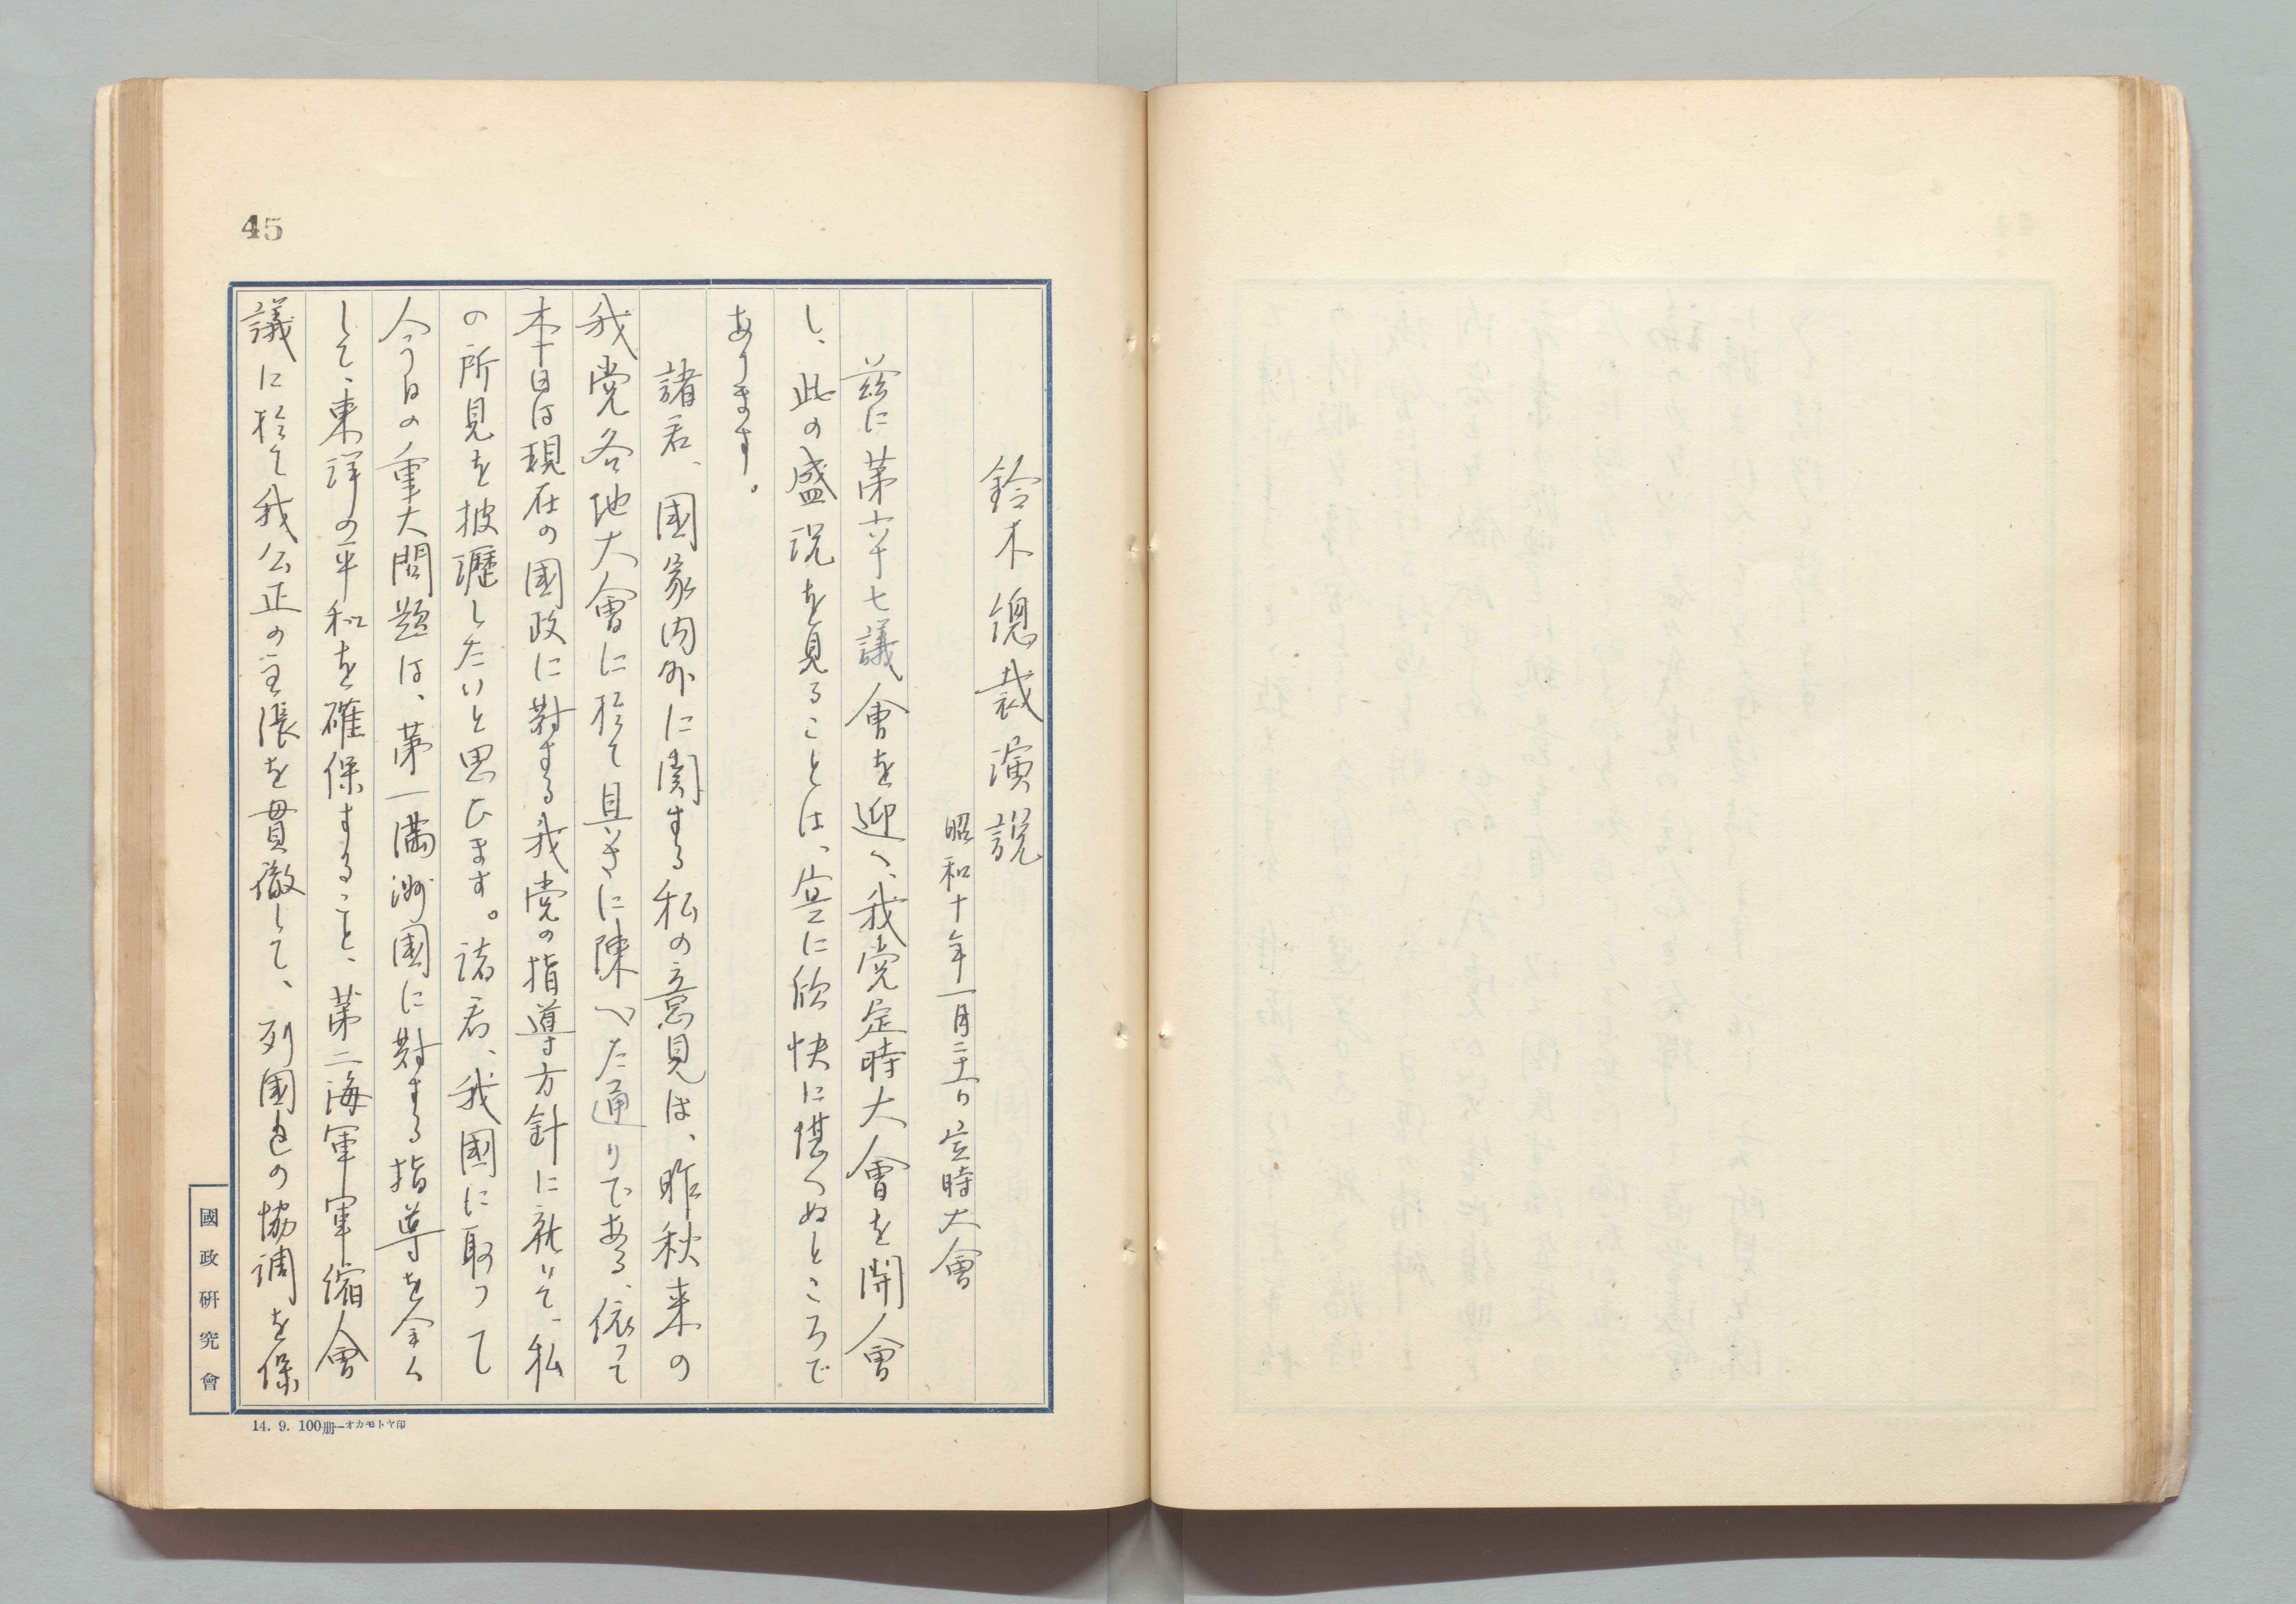 45
鈴木總裁演説
昭和十年一月二十日 定時大會
茲に第六十七議會を迎へ、我党定時大會を開會
し、此の盛況を見ることは、寔に欣快に堪へぬところで
あります。
諸君、國家内外に関する私の意見は、昨秋来の
我党各地大會に於て具さに陳べた通りである、依って
本日は現在の國政に對する我党の指導方針に就いて、私
の所見を披瀝したいと思ひます。諸君、我國に取って
今日の重大問題は、第一満洲國に對する指導を全く
して、東洋の平和を確保すること、第二海軍軍縮會
議に於て我公正の主張を貫徹して、列國との協調を保
國政研究會
14. 9. 100冊—オカモトヤ印